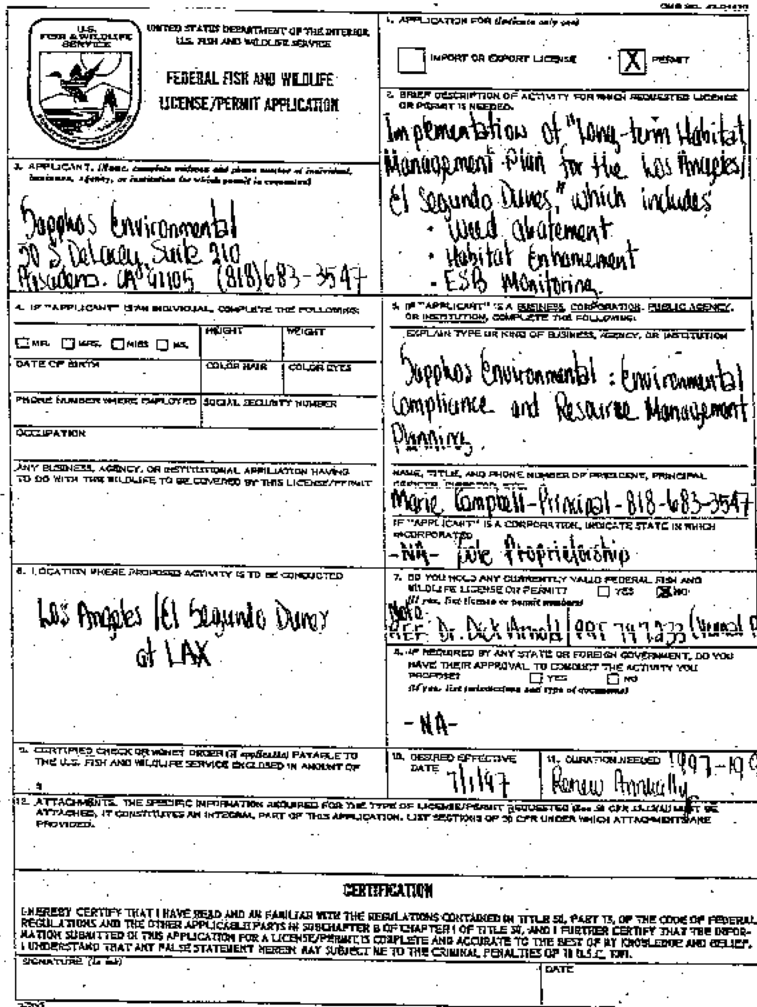 U.S.
FISH & WILDLIFE
SERVICE
UNITED STATES DEPARTMENT OF THE INTERIOR
U.S. FISH AND WILDLIFE SERVICE
FEDERAL FISH AND WILDLIFE
LICENSE/PERMIT APPLICATION
1. APPLICATION FOR (Indicate only one)
IMPORT OR EXPORT LICENSE
X PERMIT
2. BRIEF DESCRIPTION OF ACTIVITY FOR WHICH REQUESTED LICENSE
OR PERMIT IS NEEDED.
Implementation of "Long-term Habitat
Management Plan for the Los Angeles/
El Segundo Dunes," which includes
• Weed abatement
• Habitat Enhancement
• ESB Monitoring.
3. APPLICANT. (Name, complete address and phone number of individual,
business, agency, or institution for which permit is requested)
Sapphos Environmental
50 S DeLacey, Suite 210
Pasadena, CA 91105 (818)683-3547
4. IF "APPLICANT" IS AN INDIVIDUAL, COMPLETE THE FOLLOWING:
MR. MRS. MISS MS.
HEIGHT
WEIGHT
DATE OF BIRTH
COLOR HAIR
COLOR EYES
PHONE NUMBER WHERE EMPLOYED
SOCIAL SECURITY NUMBER
OCCUPATION
ANY BUSINESS, AGENCY, OR INSTITUTIONAL AFFILIATION HAVING
TO DO WITH THE WILDLIFE TO BE COVERED BY THIS LICENSE/PERMIT
5. IF "APPLICANT" IS A BUSINESS, CORPORATION, PUBLIC AGENCY,
OR INSTITUTION, COMPLETE THE FOLLOWING:
EXPLAIN TYPE OR KIND OF BUSINESS, AGENCY, OR INSTITUTION
Sapphos Environmental : Environmental
Compliance and Resource Management
Planning.
NAME, TITLE, AND PHONE NUMBER OF PRESIDENT, PRINCIPAL
OFFICER, DIRECTOR, ETC.
Marie Campbell-Principal-818-683-3547
IF "APPLICANT" IS A CORPORATION, INDICATE STATE IN WHICH
INCORPORATED
-NA- Sole Proprietorship
6. LOCATION WHERE PROPOSED ACTIVITY IS TO BE CONDUCTED
Los Angeles/El Segundo Dunes
at LAX
7. DO YOU HOLD ANY CURRENTLY VALID FEDERAL FISH AND
WILDLIFE LICENSE OR PERMIT? YES X NO
(If yes, list license or permit numbers)
Note:
REF: Dr. Dick Arnold
8. IF REQUIRED BY ANY STATE OR FOREIGN GOVERNMENT, DO YOU
HAVE THEIR APPROVAL TO CONDUCT THE ACTIVITY YOU
PROPOSE? YES NO
(If yes, list jurisdictions and type of documents)
-NA-
9. CERTIFIED CHECK OR MONEY ORDER (if applicable) PAYABLE TO
THE U.S. FISH AND WILDLIFE SERVICE ENCLOSED IN AMOUNT OF
$
10. DESIRED EFFECTIVE
DATE
7/1/97
11. DURATION NEEDED 1997-19
Renew Annually
12. ATTACHMENTS. THE SPECIFIC INFORMATION REQUIRED FOR THE TYPE OF LICENSE/PERMIT REQUESTED MUST BE
ATTACHED, IT CONSTITUTES AN INTEGRAL PART OF THIS APPLICATION. LIST SECTIONS OF 50 CFR UNDER WHICH ATTACHMENTS ARE
PROVIDED.
CERTIFICATION
I HEREBY CERTIFY THAT I HAVE READ AND AM FAMILIAR WITH THE REGULATIONS CONTAINED IN TITLE 50, PART 13, OF THE CODE OF FEDERAL
REGULATIONS AND THE OTHER APPLICABLE PARTS IN SUBCHAPTER B OF CHAPTER I OF TITLE 50, AND I FURTHER CERTIFY THAT THE INFOR-
MATION SUBMITTED IN THIS APPLICATION FOR A LICENSE/PERMIT IS COMPLETE AND ACCURATE TO THE BEST OF MY KNOWLEDGE AND BELIEF.
I UNDERSTAND THAT ANY FALSE STATEMENT HEREIN MAY SUBJECT ME TO THE CRIMINAL PENALTIES OF 18 U.S.C. 1001.
SIGNATURE (In ink)
DATE